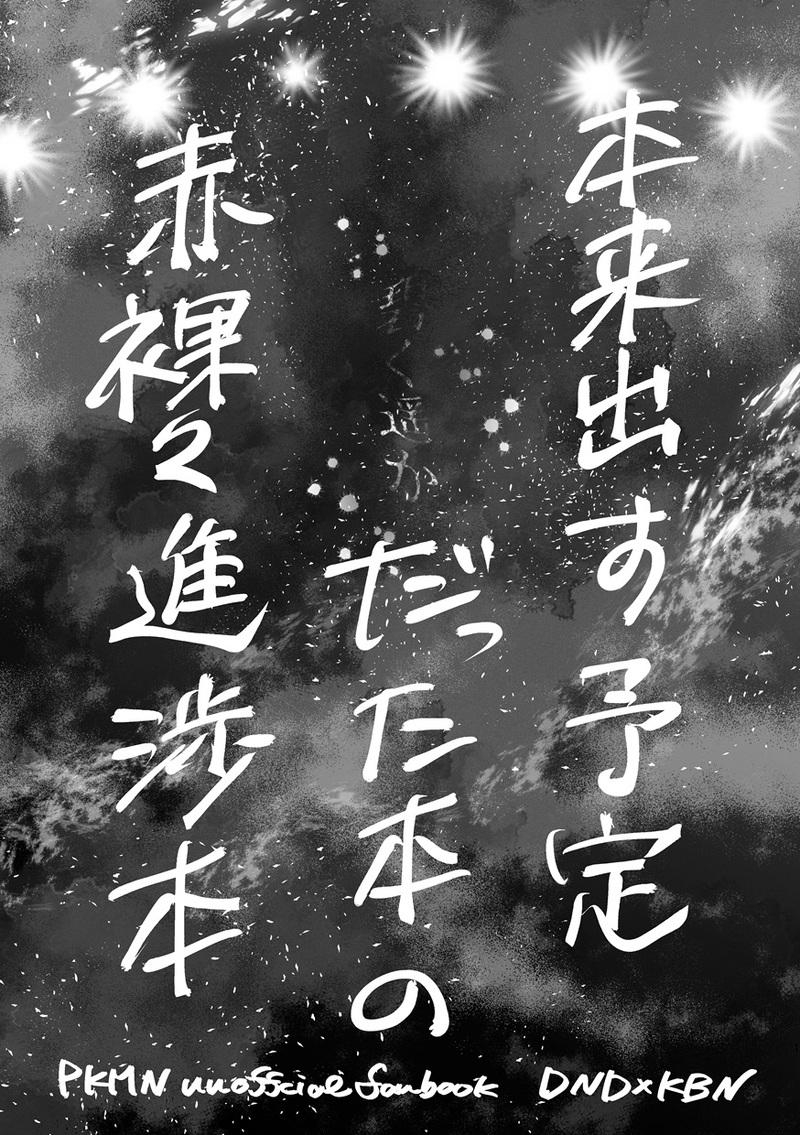 本来出す予定
だった本の
赤裸々進捗本
PKMN unofficial fanbook DND×KBN